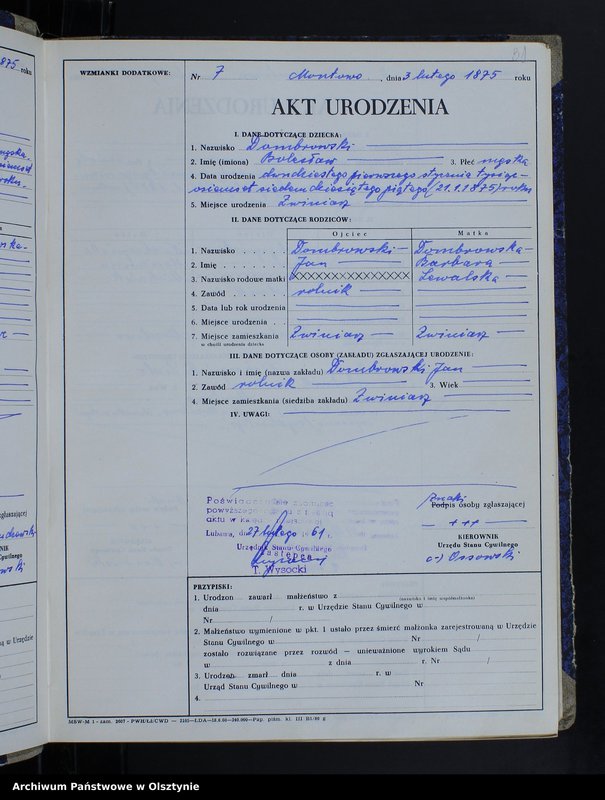 1875 roku
51
WZMIANKI DODATKOWE:
Nr 7 Montowo, dnia 3 lutego 1875 roku
AKT URODZENIA
I. DANE DOTYCZĄCE DZIECKA:
1. Nazwisko Dombrowski
2. Imię (imiona) Bolesław 3. Płeć męska
4. Data urodzenia dwudziestego pierwszego stycznia tysiąc-
osiemset siedemdziesiątego piątego (21.1.1875) roku
5. Miejsce urodzenia Zwiniarz
II. DANE DOTYCZĄCE RODZICÓW:
Ojciec Matka
1. Nazwisko Dombrowski Dombrowska
2. Imię Jan Barbara
3. Nazwisko rodowe matki XXXXXXXXXXXX Lewalska
4. Zawód rolnik
5. Data lub rok urodzenia
6. Miejsce urodzenia
7. Miejsce zamieszkania Zwiniarz Zwiniarz
w chwili urodzenia dziecka
III. DANE DOTYCZĄCE OSOBY (ZAKŁADU) ZGŁASZAJĄCEJ URODZENIE:
1. Nazwisko i imię (nazwa zakładu) Dombrowski Jan
2. Zawód rolnik 3. Wiek
4. Miejsce zamieszkania (siedziba zakładu) Zwiniarz
IV. UWAGI:
Poświadczenie zgodność
powyższego
aktu w
Lubawa, dnia 27 lutego 1961 r.
Urzędnik Stanu Cywilnego
Zastępca
T. Wysocki
Znaki
Podpis osoby zgłaszającej
+++
KIEROWNIK
Urzędu Stanu Cywilnego
(-) Ossowski
PRZYPISKI:
1. Urodzon zawarł małżeństwo z
(nazwisko i imię współmałżonka)
dnia r. w Urzędzie Stanu Cywilnego w
Nr /
2. Małżeństwo wymienione w pkt. 1 ustało przez śmierć małżonka zarejestrowaną w Urzędzie
Stanu Cywilnego w Nr /
zostało rozwiązane przez rozwód — unieważnione wyrokiem Sądu
w z dnia r. Nr /
3. Urodzon zmarł dnia r. w
Urząd Stanu Cywilnego w Nr
4.
Archiwum Państwowe w Olsztynie